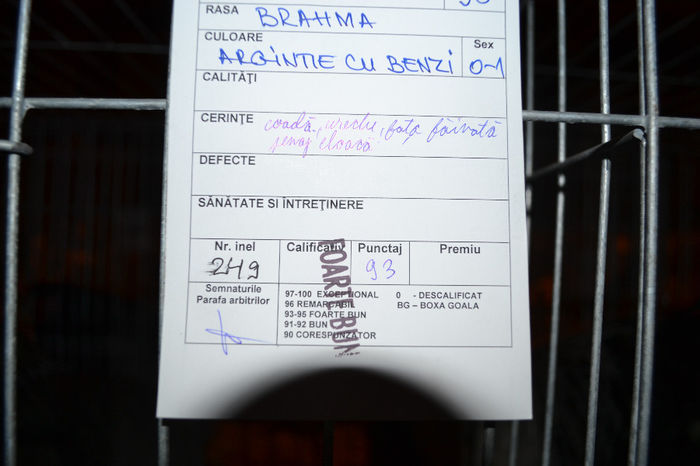 RASA BRAHMA
CULOARE Sex
ARGINTIE CU BENZI 0-1
CALITĂŢI
CERINŢE coadă, urechi, faţa făinată
penaj cloacă
DEFECTE
SĂNĂTATE SI ÎNTREŢINERE
Nr. inel Calificativ Punctaj Premiu
249 FOARTE BUN 93
Semnaturile
Parafa arbitrilor
97-100 EXCEPTIONAL 0 - DESCALIFICAT
96 REMARCABIL BG – BOXA GOALA
93-95 FOARTE BUN
91-92 BUN
90 CORESPUNZATOR